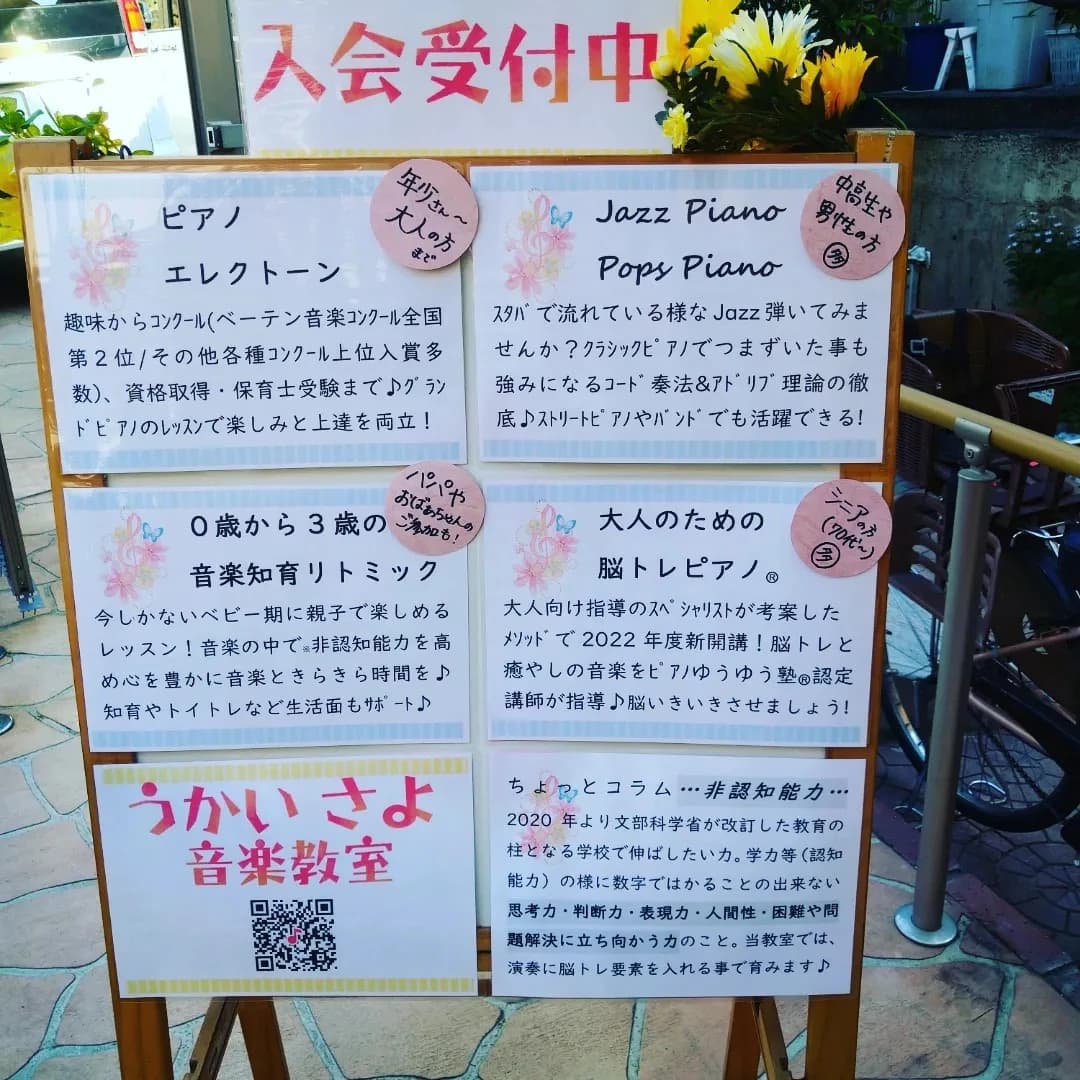 入会受付中
ピアノ
エレクトーン
年少さん〜
大人の方
まで
趣味からコンクール(ベーテン音楽コンクール全国
第２位/その他各種コンクール上位入賞多
数)、資格取得・保育士受験まで♪グラン
ドピアノのレッスンで楽しみと上達を両立！
Jazz Piano
Pops Piano
中高生や
男性の方
多
スタバで流れている様なJazz弾いてみま
せんか？クラシックピアノでつまずいた事も
強みになるコード奏法&アドリブ理論の徹
底♪ストリートピアノやバンドでも活躍できる!
０歳から３歳の
音楽知育リトミック
パパや
おばあちゃんの
ご参加も!
今しかないベビー期に親子で楽しめる
レッスン！音楽の中で※非認知能力を高
め心を豊かに音楽ときらきら時間を♪
知育やトイトレなど生活面もサポート♪
大人のための
脳トレピアノ®
シニアの方
(70代〜)
多
大人向け指導のスペシャリストが考案した
メソッドで2022年度新開講！脳トレと
癒やしの音楽をピアノゆうゆう塾®認定
講師が指導♪脳いきいきさせましょう!
うかい さよ
音楽教室
ちょっとコラム…非認知能力…
2020年より文部科学省が改訂した教育の
柱となる学校で伸ばしたい力。学力等(認知
能力)の様に数字ではかることの出来ない
思考力・判断力・表現力・人間性・困難や問
題解決に立ち向かう力のこと。当教室では、
演奏に脳トレ要素を入れる事で育みます♪